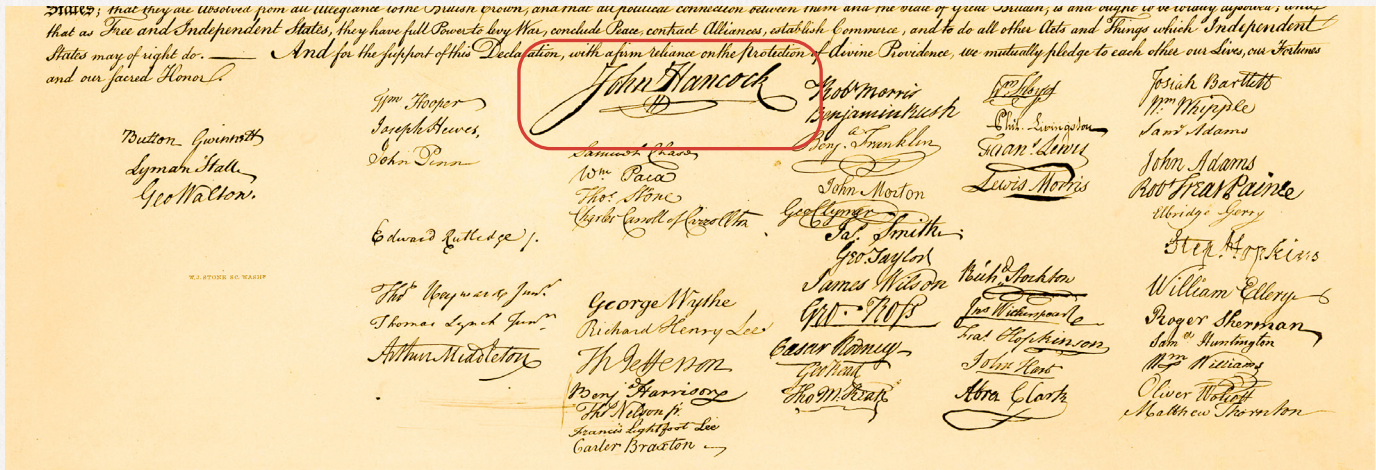 States; that they are Absolved from all Allegiance to the British Crown, and that all political connection between them and the State of Great Britain, is and ought to be totally dissolved; and
that as Free and Independent States, they have full Power to levy War, conclude Peace, contract Alliances, establish Commerce, and to do all other Acts and Things which Independent
States may of right do. — And for the support of this Declaration, with a firm reliance on the protection of divine Providence, we mutually pledge to each other our Lives, our Fortunes
and our sacred Honor.
Button Gwinnett
Lyman Hall
Geo Walton.
W.J. STONE SC. WASHN.
Wm Hooper
Joseph Hewes,
John Penn
Edward Rutledge /.
Thos Heyward Junr.
Thomas Lynch Junr.
Arthur Middleton
John Hancock
Samuel Chase
Wm Paca
Thos. Stone
Charles Carroll of Carrollton
George Wythe
Richard Henry Lee
Th Jefferson
Benj Harrison
Thos Nelson jr.
Francis Lightfoot Lee
Carter Braxton
Robt Morris
Benjamin Rush
Benj. Franklin
John Morton
Geo Clymer
Jas. Smith.
Geo. Taylor
James Wilson
Geo. Ross
Caesar Rodney
Geo Read
Tho M:Kean
Wm Floyd
Phil. Livingston
Frans. Lewis
Lewis Morris
Richd. Stockton
Jno Witherspoon
Fras. Hopkinson
John Hart
Abra Clark
Josiah Bartlett
Wm Whipple
Saml Adams
John Adams
Robt Treat Paine
Elbridge Gerry
Step. Hopkins
William Ellery
Roger Sherman
Samel Huntington
Wm Williams
Oliver Wolcott
Matthew Thornton